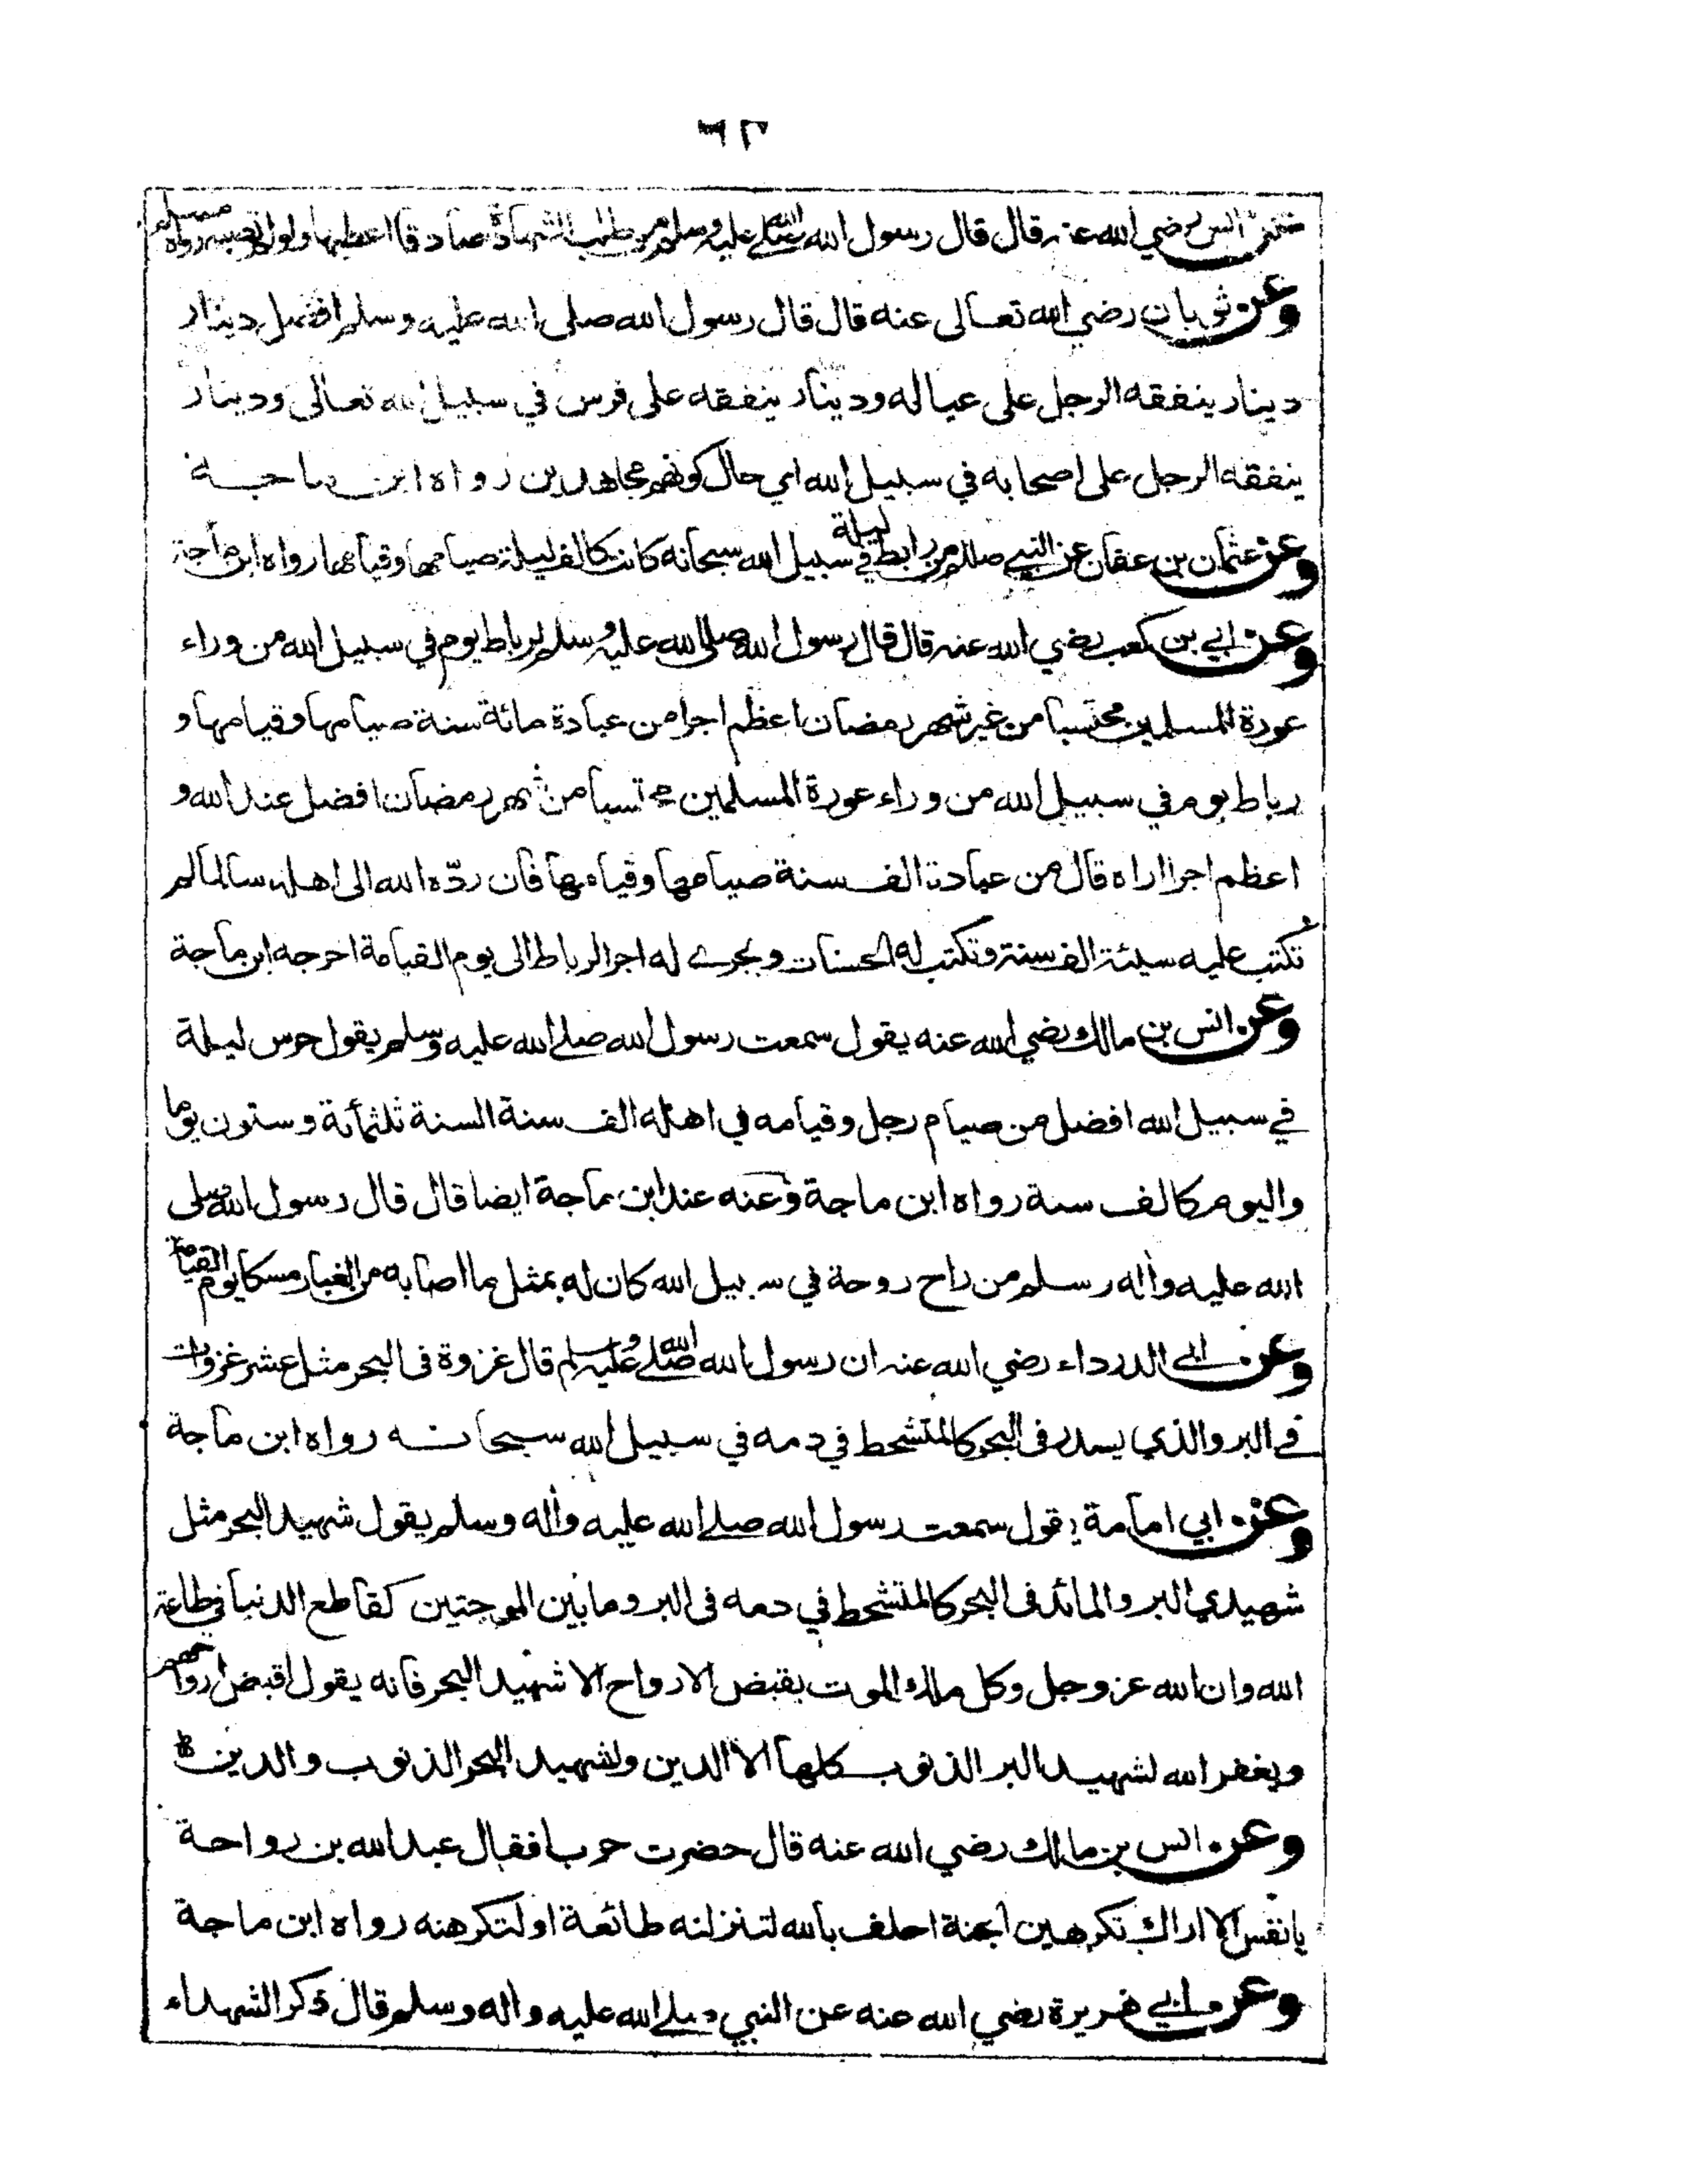 ٢٦
عن انس رضي الله عنه قال قال رسول الله صلى الله عليه وسلم من طلب الشهادة صادقا اعطيها ولو لم تصبه رواه مسلم
وعن ثوبان رضي الله تعالى عنه قال قال رسول الله صلى الله عليه وسلم افضل دينار
دينار ينفقه الرجل على عياله ودينار ينفقه على فرس في سبيل الله تعالى ودينار
ينفقه الرجل على اصحابه في سبيل الله اي حال كونهم مجاهدين رواه ابن ماجة
وعن عثمان بن عفان عن النبي صللم من رابط ليلة في سبيل الله سبحانه كانت كالف ليلة صيامها وقيامها رواه ابن ماجة
وعن ابي بن كعب رضي الله عنه قال قال رسول الله صلى الله عليه وسلم لرباط يوم في سبيل الله من وراء
عورة المسلمين محتسبا من غير شهر رمضان اعظم اجرا من عبادة مائة سنة صيامها وقيامها و
رباط يوم في سبيل الله من وراء عورة المسلمين محتسبا من شهر رمضان افضل عند الله و
اعظم اجرا اراه قال من عبادة الف سنة صيامها وقيامها فان ردّه الله الى اهله سالما لم
تُكتب عليه سيئة الف سنة وتكتب له الحسنات ويجرے له اجر الرباط الى يوم القيامة اخرجه ابن ماجة
وعن انس بن مالك رضي الله عنه يقول سمعت رسول الله صلے الله عليه وسلم يقول حرس ليلة
في سبيل الله افضل من صيام رجل وقيامه في اهله الف سنة السنة ثلثمائة وستون يوما
واليوم كالف سنة رواه ابن ماجة وعنه عند ابن ماجة ايضا قال قال رسول الله صلى
الله عليه واله وسلم من راح روحة في سبيل الله كان له بمثل ما اصابه من الغبار مسكا يوم القيامة
وعن ابي الدرداء رضي الله عنه ان رسول الله صلے الله عليه وسلم قال غزوة فى البحر مثل عشر غزوات
فے البر والذي يسدر فى البحر كالمتشحط في دمه في سبيل الله سبحانه رواه ابن ماجة
وعن ابي امامة يقول سمعت رسول الله صلے الله عليه واله وسلم يقول شهيد البحر مثل
شهيدي البر والمائد فى البحر كالمتشحط في دمه فى البر وما بين الموجتين كقاطع الدنيا في طاعة
الله وان الله عز وجل وكل ملك الموت بقبض الارواح الا شهيد البحر فانه يقول اقبض ارواحهم
ويغفر الله لشهيد البر الذنوب كلها الا الدين ولشهيد البحر الذنوب والدين
وعن انس بن مالك رضي الله عنه قال حضرت حربا فقال عبد الله بن رواحة
يا نفس الا اراك تكرهين الجنة احلف بالله لتنزلنه طائعة او لتكرهنه رواه ابن ماجة
وعن ابي هريرة رضي الله عنه عن النبي صلے الله عليه واله وسلم قال ذكر الشهداء